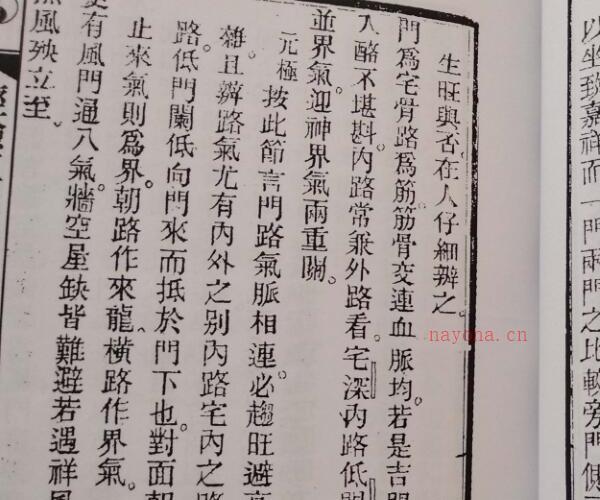 生旺與否在人仔細辨之。
門爲宅骨路爲筋。筋骨交連血脈均。若是吉門
入酪不堪斟。內路常兼外路看。宅深內路低門
並界氣。迎神界氣兩重關。
元極 按此節言門路氣脈相連。必趨旺避
雜。且辨路氣尤有內外之別。內路宅內之
路。低門闌低向門來而抵於門下也。對面
止來氣則爲界。朝路作來龍。橫路作界氣。
更有風門通八氣。牆空屋缺皆難避。若遇祥
風殃立至。
以坐致嘉祥。而一門兩門之比較。旁門
nayona.cn